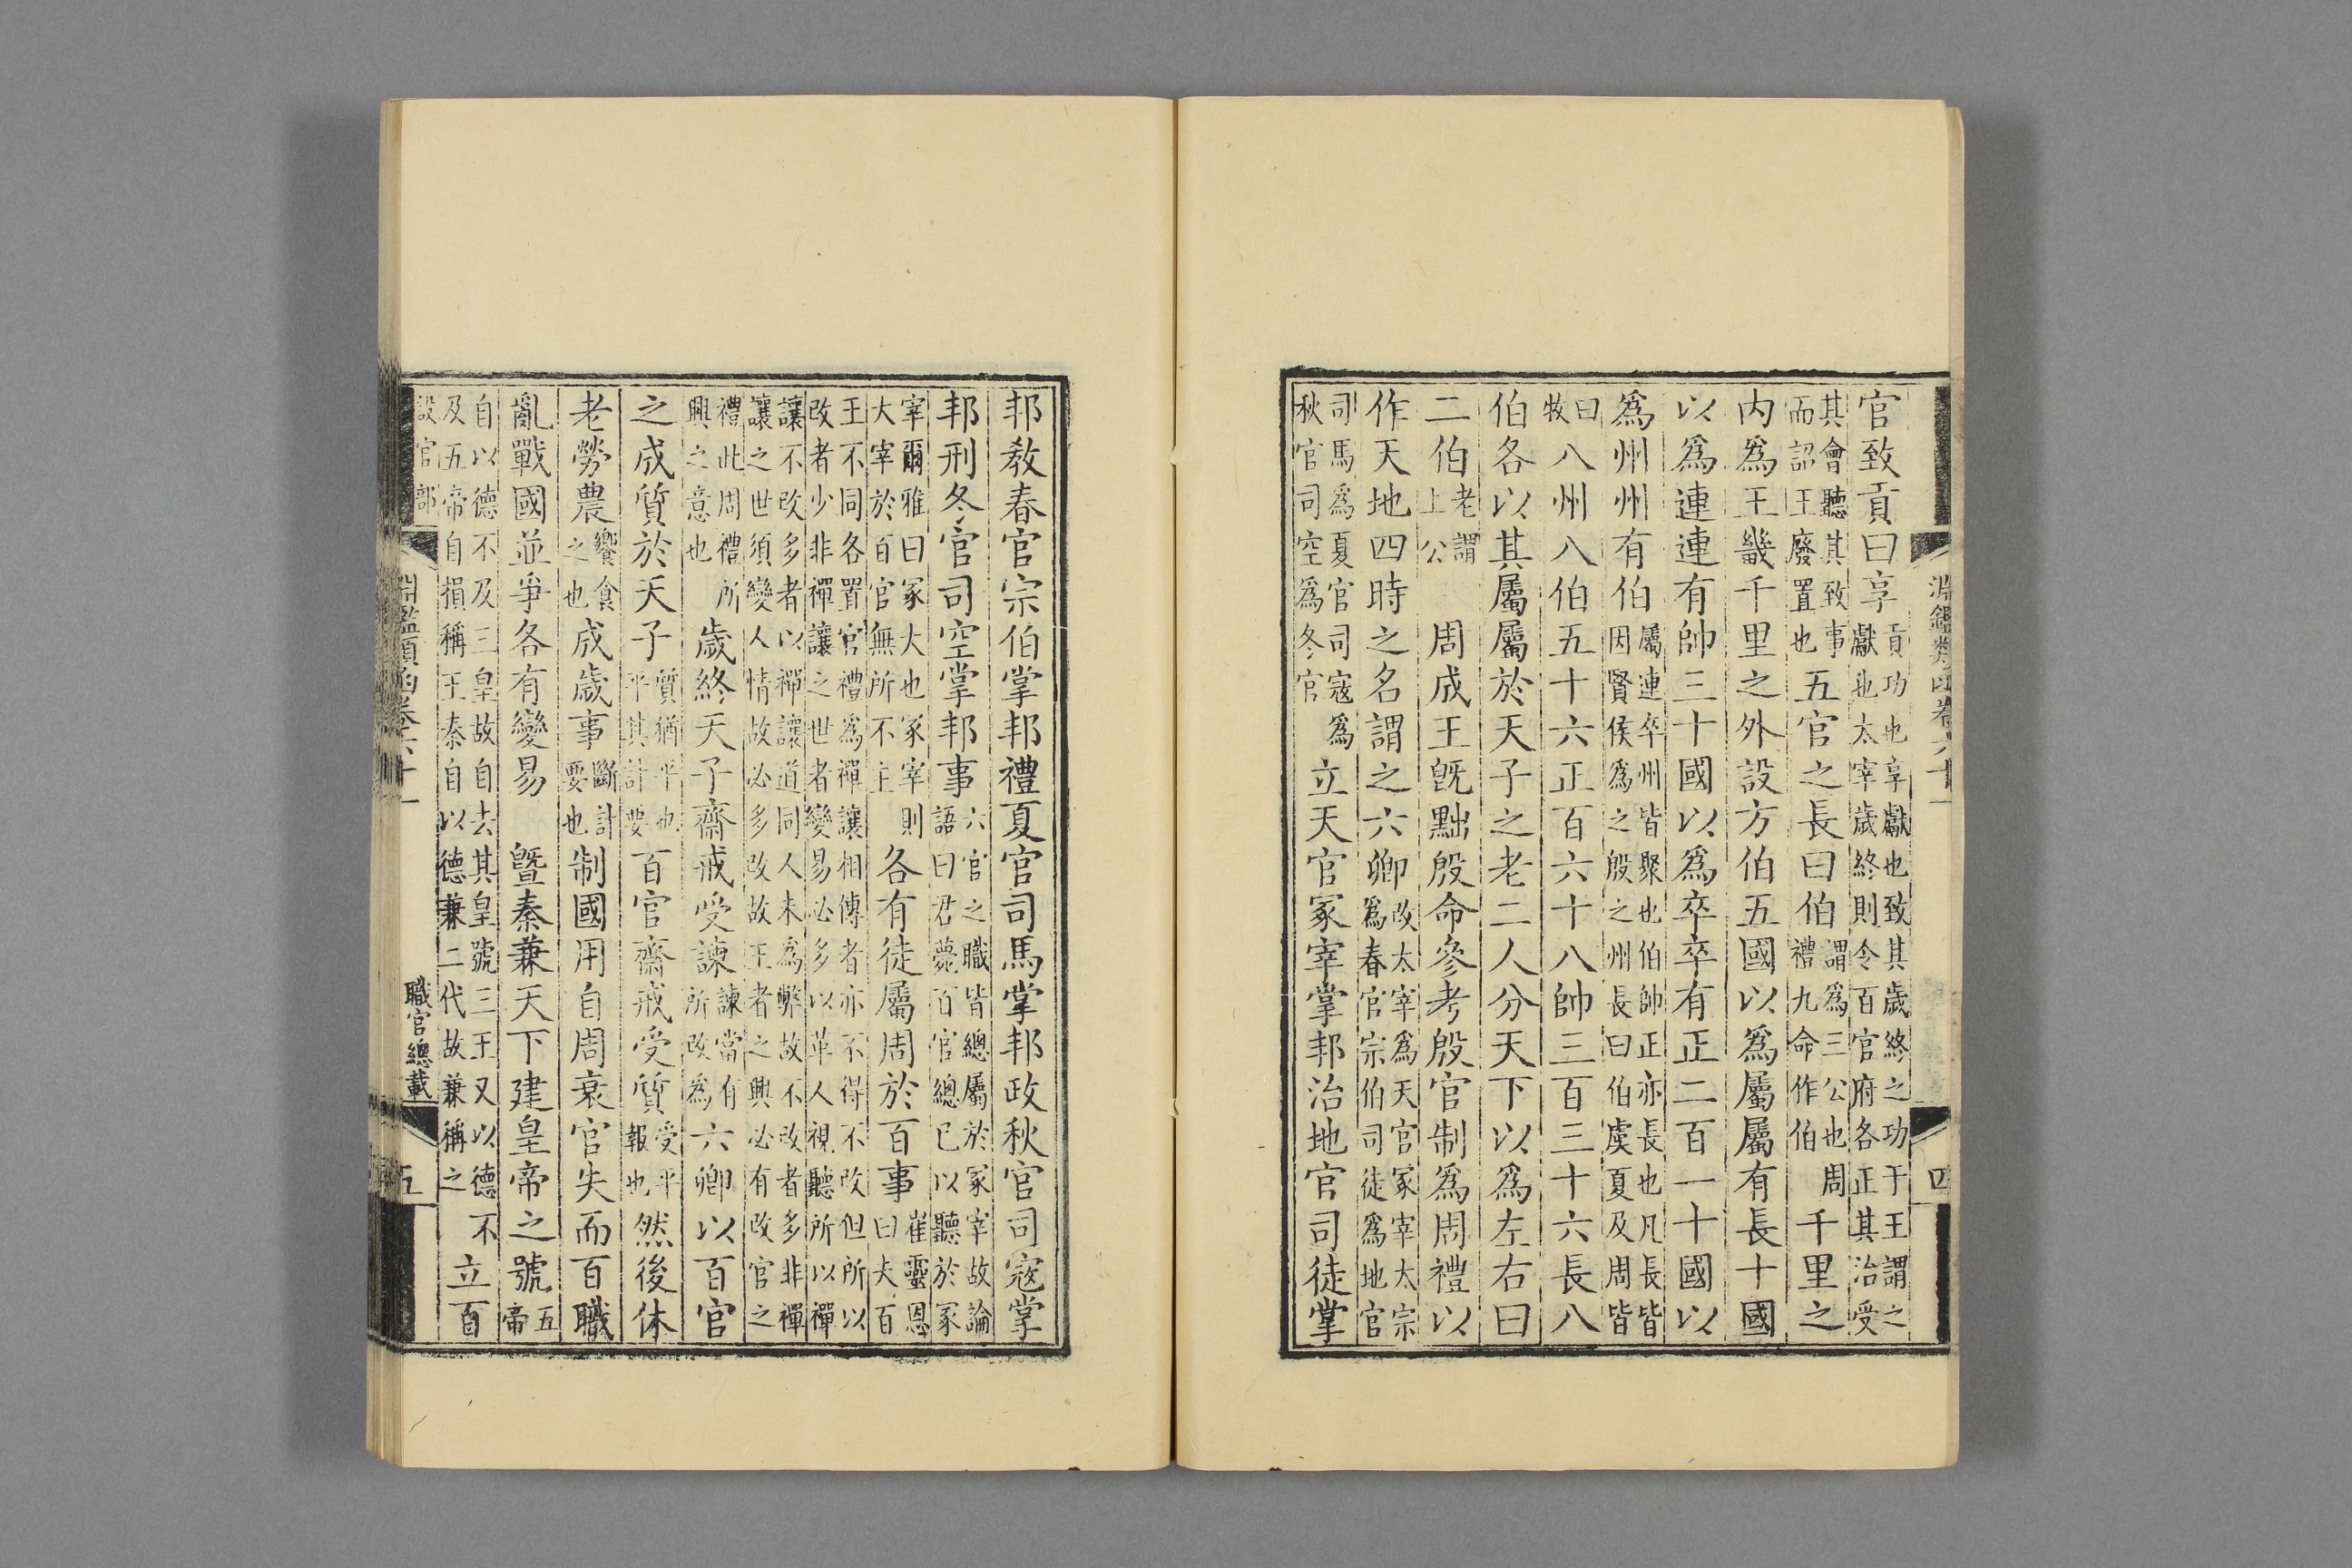 淵鑑類函卷六十一
四
官致貢曰享貢功也享獻也致其歲終之功于王謂之獻也太宰歲終則令百官府各正其治受
其會聽其致事而詔王廢置也五官之長曰伯謂爲三公也周禮九命作伯千里之
内爲王畿千里之外設方伯五國以爲屬屬有長十國
以爲連連有帥三十國以爲卒卒有正二百一十國以
爲州州有伯屬連卒州皆聚也伯帥正亦長也凡長皆因賢侯爲之殷之州長曰伯虞夏及周皆
曰牧八州八伯五十六正百六十八帥三百三十六長八
伯各以其屬屬於天子之老二人分天下以爲左右曰
二伯老謂上公周成王旣黜殷命參考殷官制爲周禮以
作天地四時之名謂之六卿改太宰爲天官冢宰太宗爲春官宗伯司徒爲地官
司馬爲夏官司寇爲秋官司空爲冬官立天官冢宰掌邦治地官司徒掌
邦教春官宗伯掌邦禮夏官司馬掌邦政秋官司寇掌
邦刑冬官司空掌邦事六官之職皆總屬於冢宰故論語曰君薨百官總已以聽於冢
宰爾雅曰冢大也冢宰則大宰於百官無所不主各有徒屬周於百事崔靈恩曰夫百
王不同各置官禮爲禪讓相傳者亦不得不改但所以改者少非禪讓之世者變易必多以革人視聽所以禪
讓不改多者以禪讓道同人未爲弊故不改者多非禪讓之世須變人情故必多改故王者之興必有改官之
禮此周禮所興之意也歲終天子齋戒受諫諫當有所改爲六卿以百官
之成質於天子質猶平也平其計要百官齋戒受質受平報也然後休
老勞農饗食之也成歲事斷計要也制國用自周衰官失而百職
亂戰國並爭各有變易　曁秦兼天下建皇帝之號五帝
自以德不及三皇故自去其皇號三王又以德不及五帝自損稱王秦自以德兼二代故兼稱之立百
設官部
淵鑑類函卷六十一
職官總載
五